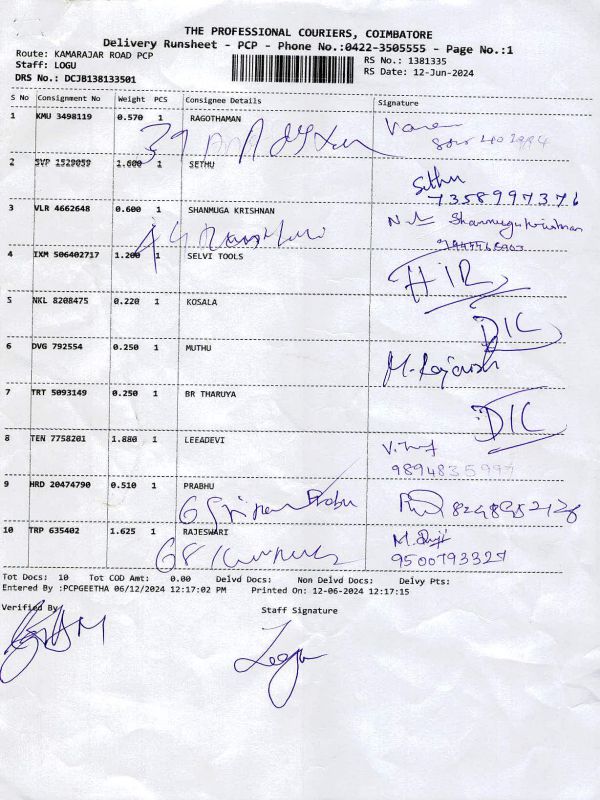 THE PROFESSIONAL COURIERS, COIMBATORE
Delivery Runsheet - PCP - Phone No.:0422-3505555 - Page No.:1
Route: KAMARAJAR ROAD PCP
Staff: LOGU
DRS No.: DCJB138133501
RS No.: 1381335
RS Date: 12-Jun-2024
S No Consignment No Weight PCS Consignee Details Signature
1 KMU 3498119 0.570 1 RAGOTHAMAN
2 SVP 1529059 1.600 1 SETHU
Sethu
7358997376
3 VLR 4662648 0.600 1 SHANMUGA KRISHNAN
Shanmugakrishnan
4 IXM 506402717 1.200 1 SELVI TOOLS
5 NKL 8208475 0.220 1 KOSALA
D/C
6 DVG 792554 0.250 1 MUTHU
7 TRT 5093149 0.250 1 BR THARUYA
D/C
8 TEN 7758201 1.880 1 LEEADEVI
9 HRD 20474790 0.510 1 PRABHU
10 TRP 635402 1.625 1 RAJESWARI
9500793327
Tot Docs: 10 Tot COD Amt: 0.00 Delvd Docs: Non Delvd Docs: Delvy Pts:
Entered By :PCPGEETHA 06/12/2024 12:17:02 PM Printed On: 12-06-2024 12:17:15
Verified By Staff Signature
Logu